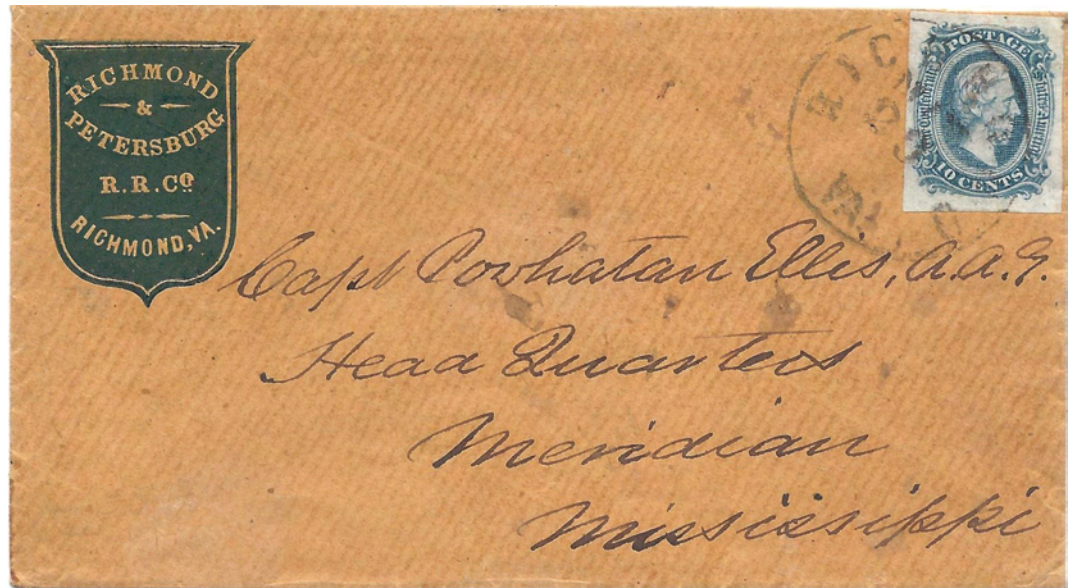 RICHMOND
&
PETERSBURG
R.R. Co.
RICHMOND, VA.
POSTAGE
10 CENTS
VA.
Capt Powhatan Ellis, A.A.G.
Head Quarters
Meridian
Mississippi